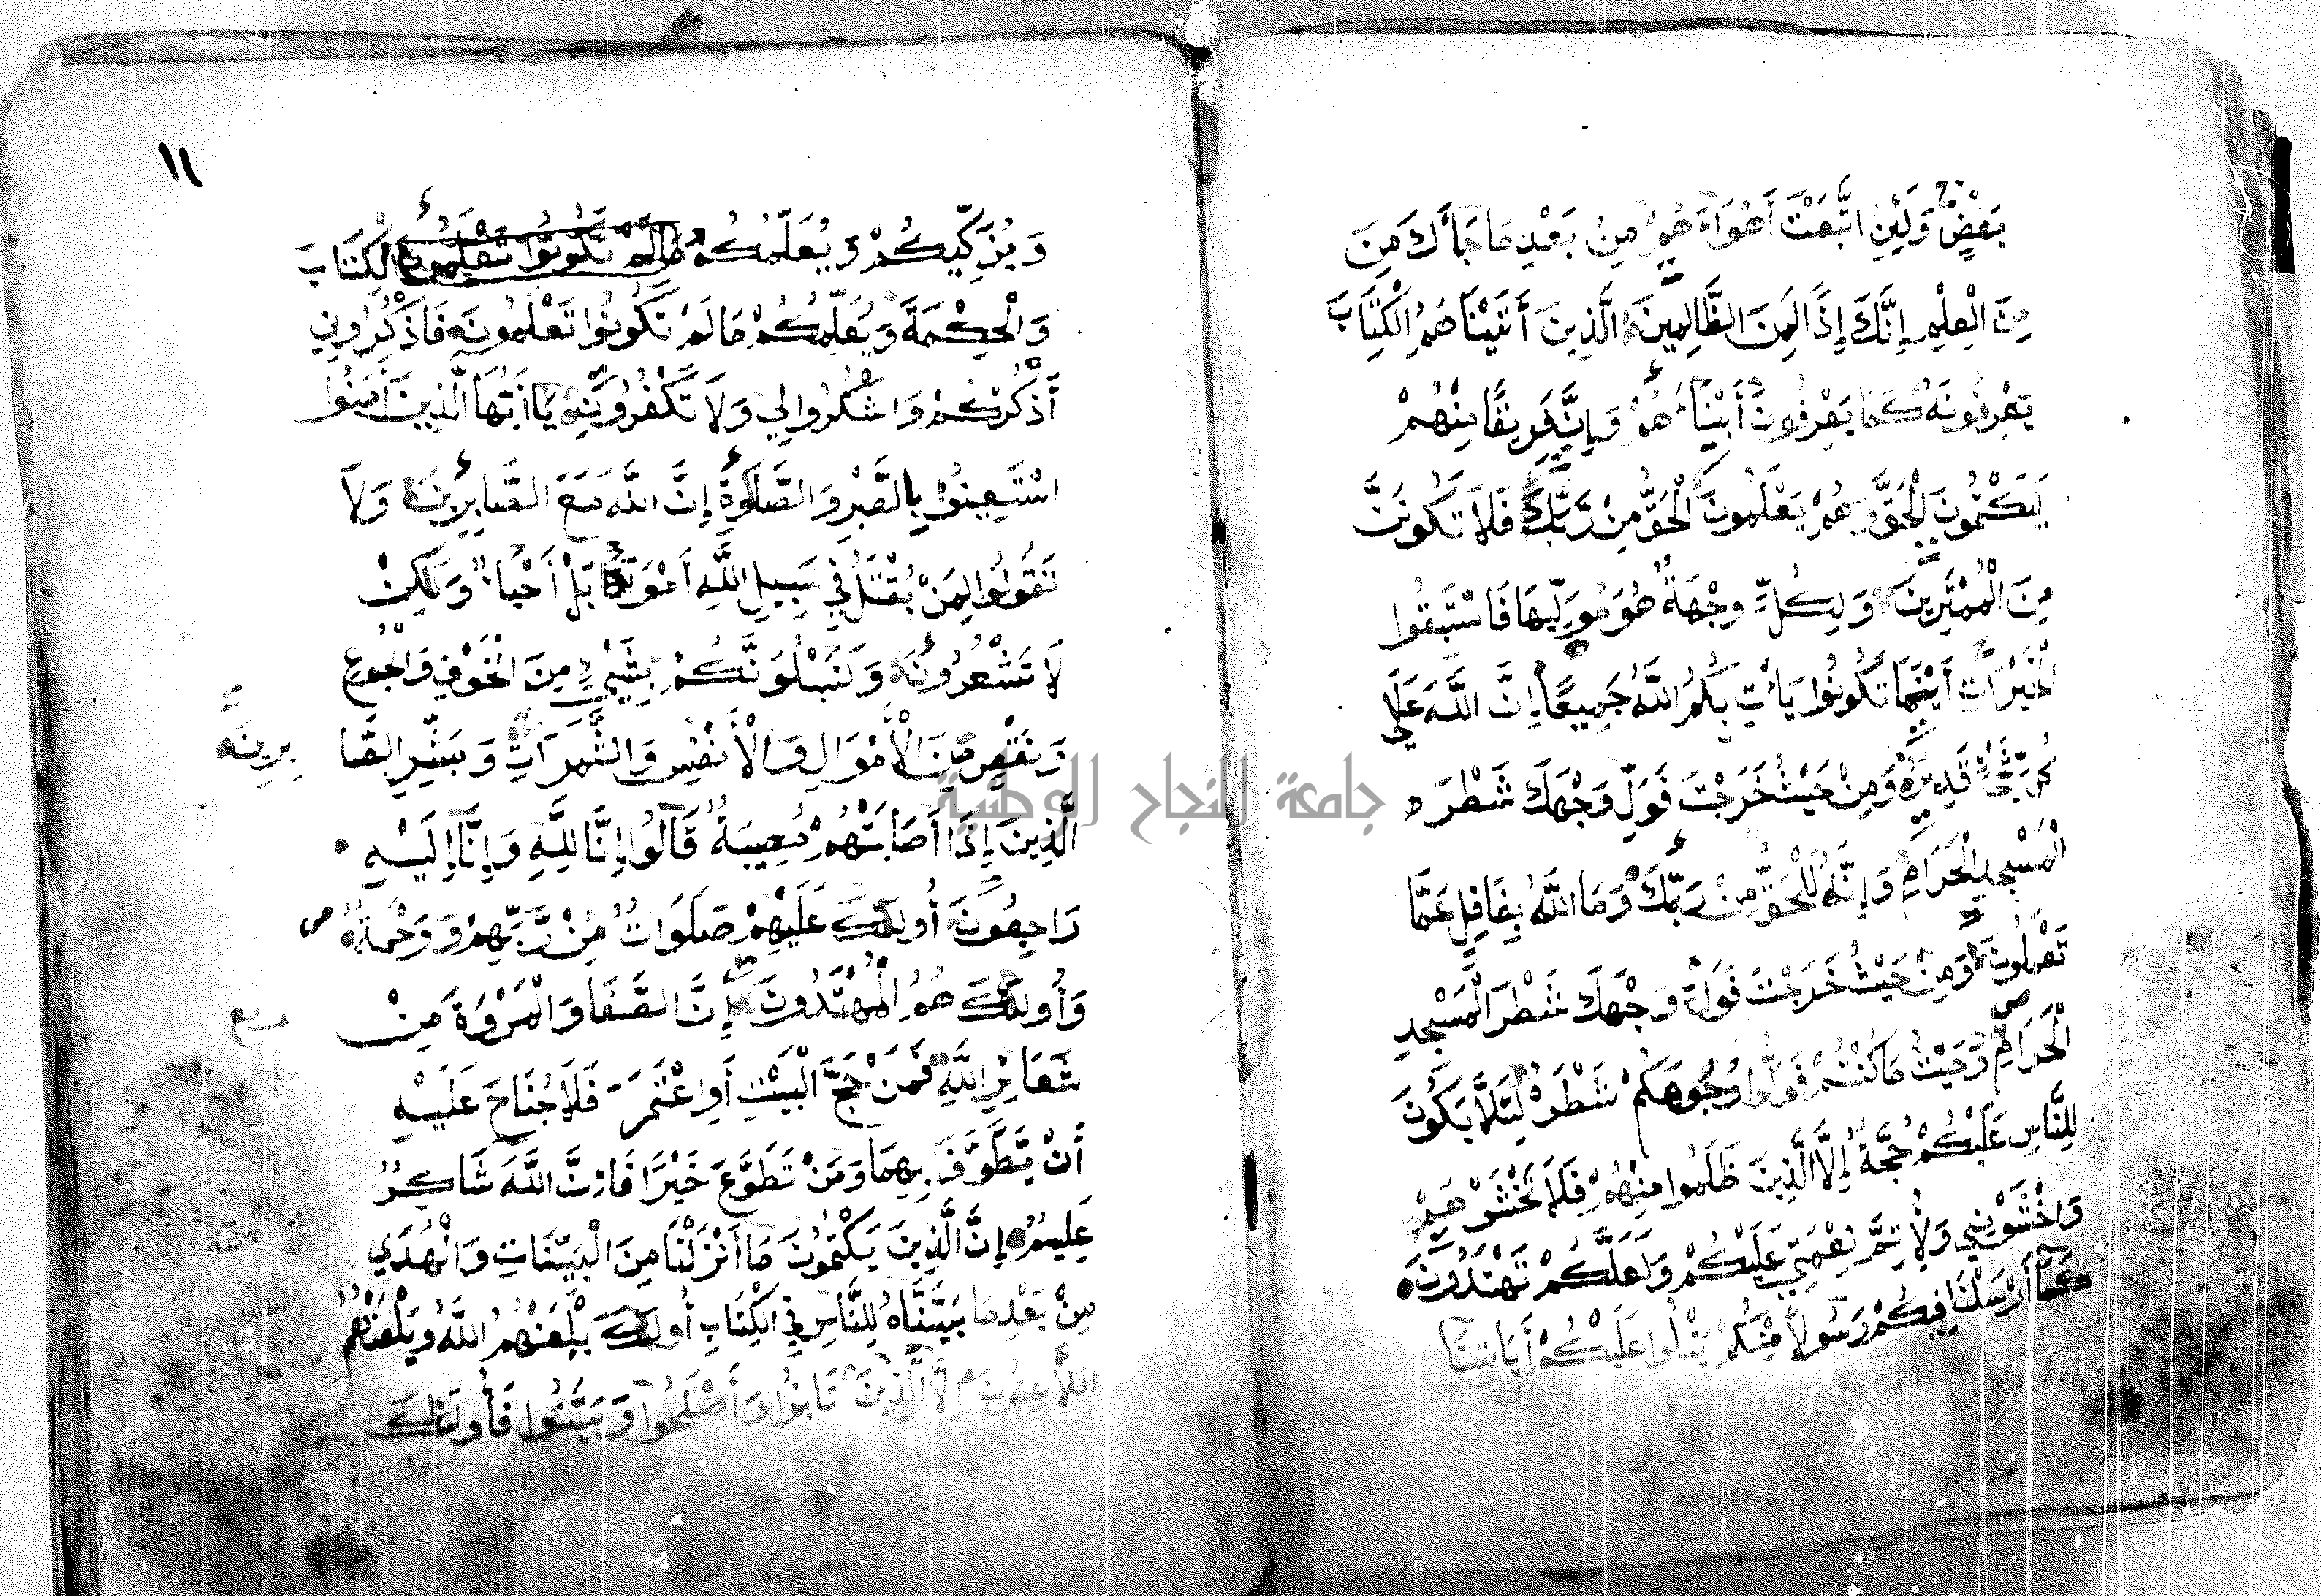 بَعْضٍ وَلَئِنِ اتَّبَعْتَ أَهْوَاءَهُمْ مِنْ بَعْدِ مَا جَاءَكَ مِنَ
مِنَ الْعِلْمِ إِنَّكَ إِذًا لَمِنَ الظَّالِمِينَ الَّذِينَ أَتَيْنَاهُمُ الْكِتَابَ
يَعْرِفُونَهُ كَمَا يَعْرِفُونَ أَبْنَاءَهُمْ وَإِنَّ فَرِيقًا مِنْهُمْ
لَيَكْتُمُونَ الْحَقَّ وَهُمْ يَعْلَمُونَ الْحَقُّ مِنْ رَبِّكَ فَلَا تَكُونَنَّ
مِنَ الْمُمْتَرِينَ وَلِكُلٍّ وِجْهَةٌ هُوَ مُوَلِّيهَا فَاسْتَبِقُوا
الْخَيْرَاتِ أَيْنَمَا تَكُونُوا يَأْتِ بِكُمُ اللَّهُ جَمِيعًا إِنَّ اللَّهَ عَلَى
كُلِّ شَيْءٍ قَدِيرٌ وَمِنْ حَيْثُ خَرَجْتَ فَوَلِّ وَجْهَكَ شَطْرَ
الْمَسْجِدِ الْحَرَامِ وَإِنَّهُ لَلْحَقُّ مِنْ رَبِّكَ وَمَا اللَّهُ بِغَافِلٍ عَمَّا
تَعْمَلُونَ وَمِنْ حَيْثُ خَرَجْتَ فَوَلِّ وَجْهَكَ شَطْرَ الْمَسْجِدِ
الْحَرَامِ وَحَيْثُ مَا كُنْتُمْ فَوَلُّوا وُجُوهَكُمْ شَطْرَهُ لِئَلَّا يَكُونَ
لِلنَّاسِ عَلَيْكُمْ حُجَّةٌ إِلَّا الَّذِينَ ظَلَمُوا مِنْهُمْ فَلَا تَخْشَوْهُمْ
وَاخْشَوْنِي وَلِأُتِمَّ نِعْمَتِي عَلَيْكُمْ وَلَعَلَّكُمْ تَهْتَدُونَ
كَمَا أَرْسَلْنَا فِيكُمْ رَسُولًا مِنْكُمْ يَتْلُوا عَلَيْكُمْ أَيَاتِنَا
١١
وَيُزَكِّيكُمْ وَيُعَلِّمُكُمْ مَا لَمْ تَكُونُوا تَعْلَمُونَ الْكِتَابَ
وَالْحِكْمَةَ وَيُعَلِّمُكُمْ مَا لَمْ تَكُونُوا تَعْلَمُونَ فَاذْكُرُونِي
أَذْكُرْكُمْ وَاشْكُرُوا لِي وَلَا تَكْفُرُونِ يَا أَيُّهَا الَّذِينَ آمَنُوا
اسْتَعِينُوا بِالصَّبْرِ وَالصَّلَوةِ إِنَّ اللَّهَ مَعَ الصَّابِرِينَ وَلَا
تَقُولُوا لِمَنْ يُقْتَلُ فِي سَبِيلِ اللَّهِ أَمْوَاتٌ بَلْ أَحْيَاءٌ وَلَكِنْ
لَا تَشْعُرُونَ وَلَنَبْلُوَنَّكُمْ بِشَيْءٍ مِنَ الْخَوْفِ وَالْجُوعِ
وَنَقْصٍ مِنَ الْأَمْوَالِ وَالْأَنْفُسِ وَالثَّمَرَاتِ وَبَشِّرِ الصَّا بِرِينَ
الَّذِينَ إِذَا أَصَابَتْهُمْ مُصِيبَةٌ قَالُوا إِنَّا لِلَّهِ وَإِنَّا إِلَيْهِ
رَاجِعُونَ أُولَئِكَ عَلَيْهِمْ صَلَوَاتٌ مِنْ رَبِّهِمْ وَرَحْمَةٌ
وَأُولَئِكَ هُمُ الْمُهْتَدُونَ إِنَّ الصَّفَا وَالْمَرْوَةَ مِنْ
شَعَائِرِ اللَّهِ فَمَنْ حَجَّ الْبَيْتَ أَوِ اعْتَمَرَ فَلَا جُنَاحَ عَلَيْهِ
أَنْ يَطَّوَّفَ بِهِمَا وَمَنْ تَطَوَّعَ خَيْرًا فَإِنَّ اللَّهَ شَاكِرٌ
عَلِيمٌ إِنَّ الَّذِينَ يَكْتُمُونَ مَا أَنْزَلْنَا مِنَ الْبَيِّنَاتِ وَالْهُدَى
مِنْ بَعْدِ مَا بَيَّنَّاهُ لِلنَّاسِ فِي الْكِتَابِ أُولَئِكَ يَلْعَنُهُمُ اللَّهُ وَيَلْعَنُهُمُ
اللَّاعِنُونَ إِلَّا الَّذِينَ تَابُوا وَأَصْلَحُوا وَبَيَّنُوا فَأُولَئِكَ
جامعة النجاح الوطنية